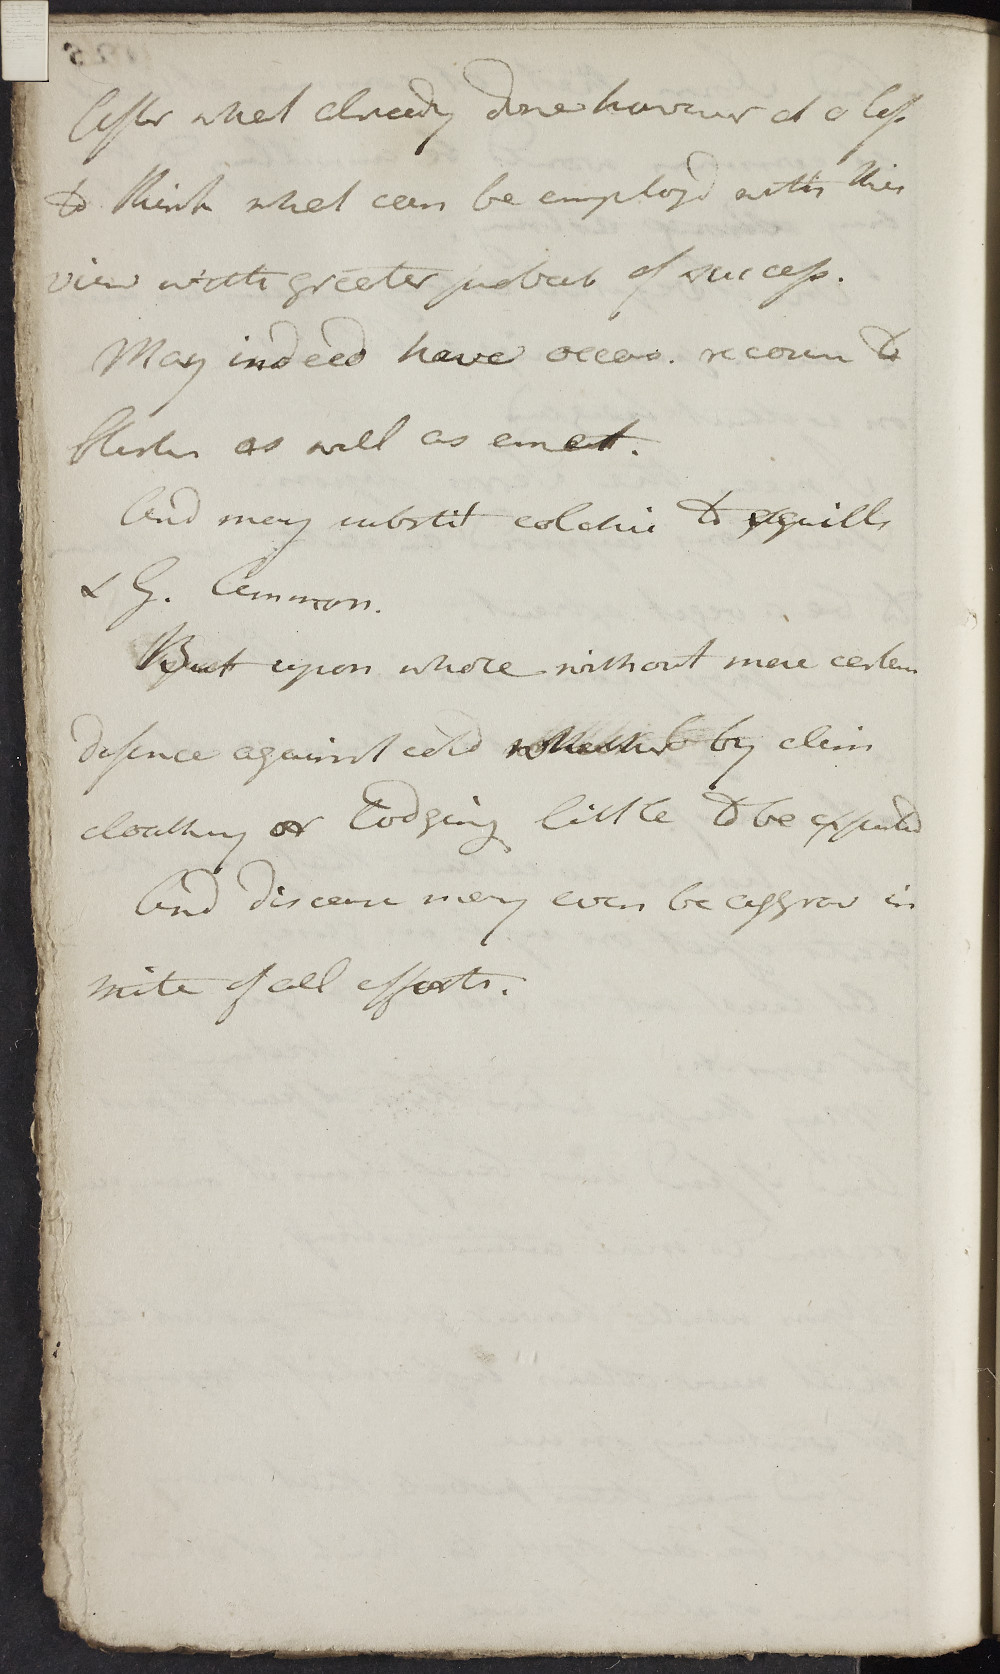 After what already done however at a loss
to think what can be employd with this
view with greater probab of success.
May indeed have occas. recourse to
blister as well as emet.
And may substit colchic to squills
& G. Ammon.
But upon whole without more certain
defence against cold whether by clim
cloathing or lodging little to be expected
And disease may even be aggrav in
spite of all efforts.